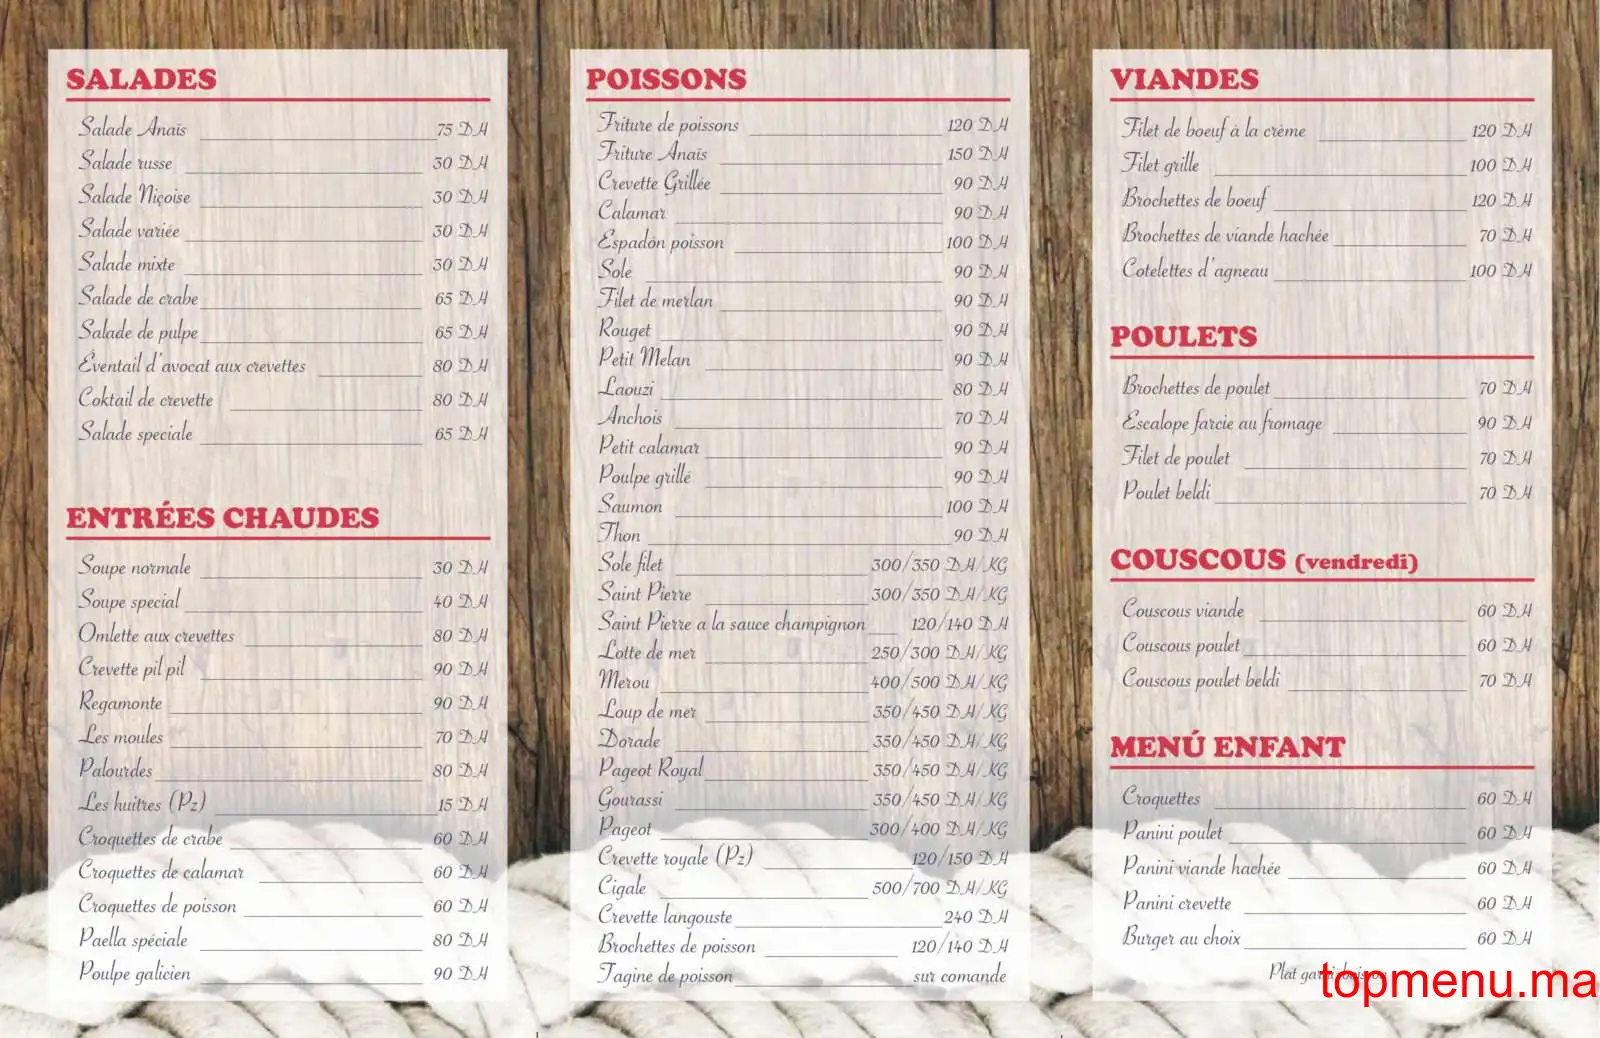 SALADES
Salade Anaïs 75 DH
Salade russe 30 DH
Salade Niçoise 30 DH
Salade variée 30 DH
Salade mixte 30 DH
Salade de crabe 65 DH
Salade de pulpe 65 DH
Éventail d'avocat aux crevettes 80 DH
Coktail de crevette 80 DH
Salade speciale 65 DH
ENTRÉES CHAUDES
Soupe normale 30 DH
Soupe special 40 DH
Omlette aux crevettes 80 DH
Crevette pil pil 90 DH
Regamonte 90 DH
Les moules 70 DH
Palourdes 80 DH
Les huitres (Pz) 15 DH
Croquettes de crabe 60 DH
Croquettes de calamar 60 DH
Croquettes de poisson 60 DH
Paella spéciale 80 DH
Poulpe galicien 90 DH
POISSONS
Friture de poissons 120 DH
Friture Anaïs 150 DH
Crevette Grillée 90 DH
Calamar 90 DH
Espadón poisson 100 DH
Sole 90 DH
Filet de merlan 90 DH
Rouget 90 DH
Petit Melan 90 DH
Laouzi 80 DH
Anchois 70 DH
Petit calamar 90 DH
Poulpe grillé 90 DH
Saumon 100 DH
Thon 90 DH
Sole filet 300/350 DH/KG
Saint Pierre 300/350 DH/KG
Saint Pierre a la sauce champignon 120/140 DH
Lotte de mer 250/300 DH/KG
Merou 400/500 DH/KG
Loup de mer 350/450 DH/KG
Dorade 350/450 DH/KG
Pageot Royal 350/450 DH/KG
Gourassi 350/450 DH/KG
Pageot 300/400 DH/KG
Crevette royale (Pz) 120/150 DH
Cigale 500/700 DH/KG
Crevette langouste 240 DH
Brochettes de poisson 120/140 DH
Tagine de poisson sur comande
VIANDES
Filet de boeuf à la crème 120 DH
Filet grille 100 DH
Brochettes de boeuf 120 DH
Brochettes de viande hachée 70 DH
Cotelettes d'agneau 100 DH
POULETS
Brochettes de poulet 70 DH
Escalope farcie au fromage 90 DH
Filet de poulet 70 DH
Poulet beldi 70 DH
COUSCOUS (vendredi)
Couscous viande 60 DH
Couscous poulet 60 DH
Couscous poulet beldi 70 DH
MENÚ ENFANT
Croquettes 60 DH
Panini poulet 60 DH
Panini viande hachée 60 DH
Panini crevette 60 DH
Burger au choix 60 DH
Plat
topmenu.ma